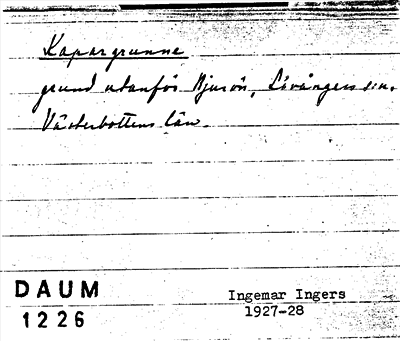 Kapargrunne
grund utanför Bjurön, Lövångers sn.
Västerbottens län.
DAUM
1226
Ingemar Ingers
1927-28